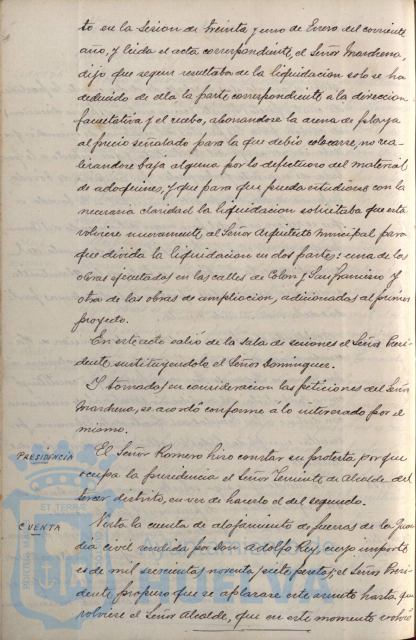 to en la Sesion de treinta y uno de Enero del corriente
año, y leida el acta correspondiente, el Señor Marchena,
dijo que segun resultaba de la liquidacion solo se ha
deducido de ella la parte correspondiente a la direccion
facultativa y el cuebo, abonandose la arena de playa
al precio señalado para la que debió colocarse, no rea-
lizandose baja alguna por lo defectuoso del material
de adoquines, y que para que pueda estudiarse con la
necesaria claridad la liquidacion solicitaba que esta
volviese nuevamente al Señor Arquitecto Municipal para
que divida la liquidacion en dos partes: una de las
obras ejecutadas en las calles de Colon y San Francisco y
otra de las obras de ampliacion, adicionadas al primer
proyecto.
En este acto salió de la sala de sesiones el Señor Presi-
dente sustituyendole el Señor Dominguez.
Y tomadas en consideracion las peticiones del Señor
Marchena, se acordó conforme a lo interesado por el
mismo.
PRESIDENCIA
El Señor Romero hizo constar su protesta por que
ocupa la presidencia el Señor Teniente de Alcalde del
tercer distrito, en vez de hacerlo el del segundo.
CUENTA
Vista la cuenta de alojamiento de fuerzas de la Guar
dia civil rendida por Don Adolfo Rey, cuyo importe
es de mil seiscientas noventa y siete pesetas, el Señor Presi-
dente propuso que se aplazase este asunto hasta que
volviese el Señor Alcalde, que en este momento volvió